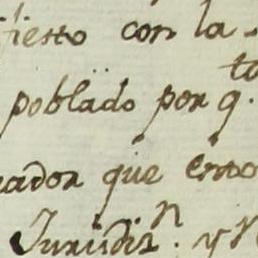 fiesto con la
poblado por q.to
rador que esto
Jurisdiz.n y